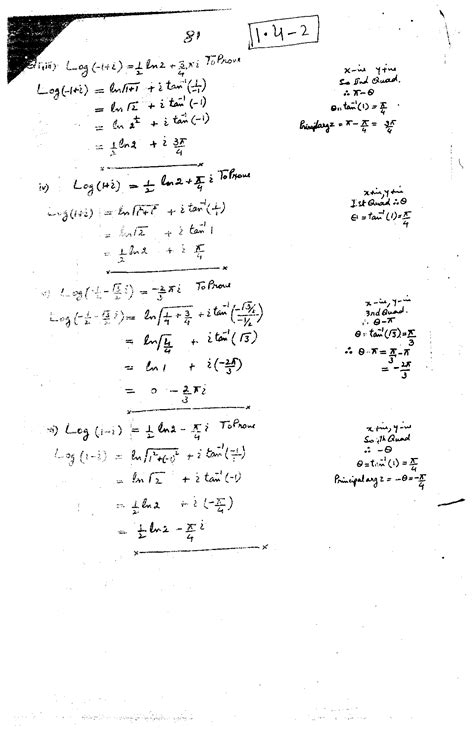 81
1.4-2
iii) Log(-1+i) = 1/2 ln2 + 3/4 πi To Prove
Log(-1+i) = ln√1+1 + i tan⁻¹(1/-1)
= ln√2 + i tan⁻¹(-1)
= ln 2^½ + i tan⁻¹(-1)
= 1/2 ln2 + i 3π/4
x -ive y +ive
So IInd Quad.
∴ π-θ
θ = tan⁻¹(1) = π/4
Principal arg z = π - π/4 = 3π/4
iv) Log(1+i) = 1/2 ln2 + π/4 i To Prove
Log(1+i) = ln√1²+1² + i tan⁻¹(1/1)
= ln√2 + i tan⁻¹ 1
= 1/2 ln2 + i π/4
x +ive, y +ive
Ist Quad ∴ θ
θ = tan⁻¹(1) = π/4
v) Log(-1/2 - √3/2 i) = -2/3 πi To Prove
Log(-1/2 - √3/2 i) = ln√1/4 + 3/4 + i tan⁻¹(-√3/2 / -1/2)
= ln√4/4 + i tan⁻¹(√3)
= ln 1 + i(-2π/3)
= 0 - 2/3 πi
x -ive, y -ive
3rd Quad.
∴ θ-π
θ = tan⁻¹(√3) = π/3
∴ θ-π = π/3 - π
= -2π/3
vi) Log(1-i) = 1/2 ln2 - π/4 i To Prove
Log(1-i) = ln√1²+(-1)² + i tan⁻¹(-1/1)
= ln√2 + i tan⁻¹(-1)
= 1/2 ln2 + i(-π/4)
= 1/2 ln2 - π/4 i
x +ive, y -ive
So 4th Quad
∴ -θ
θ = tan⁻¹(1) = π/4
Principal arg z = -θ = -π/4